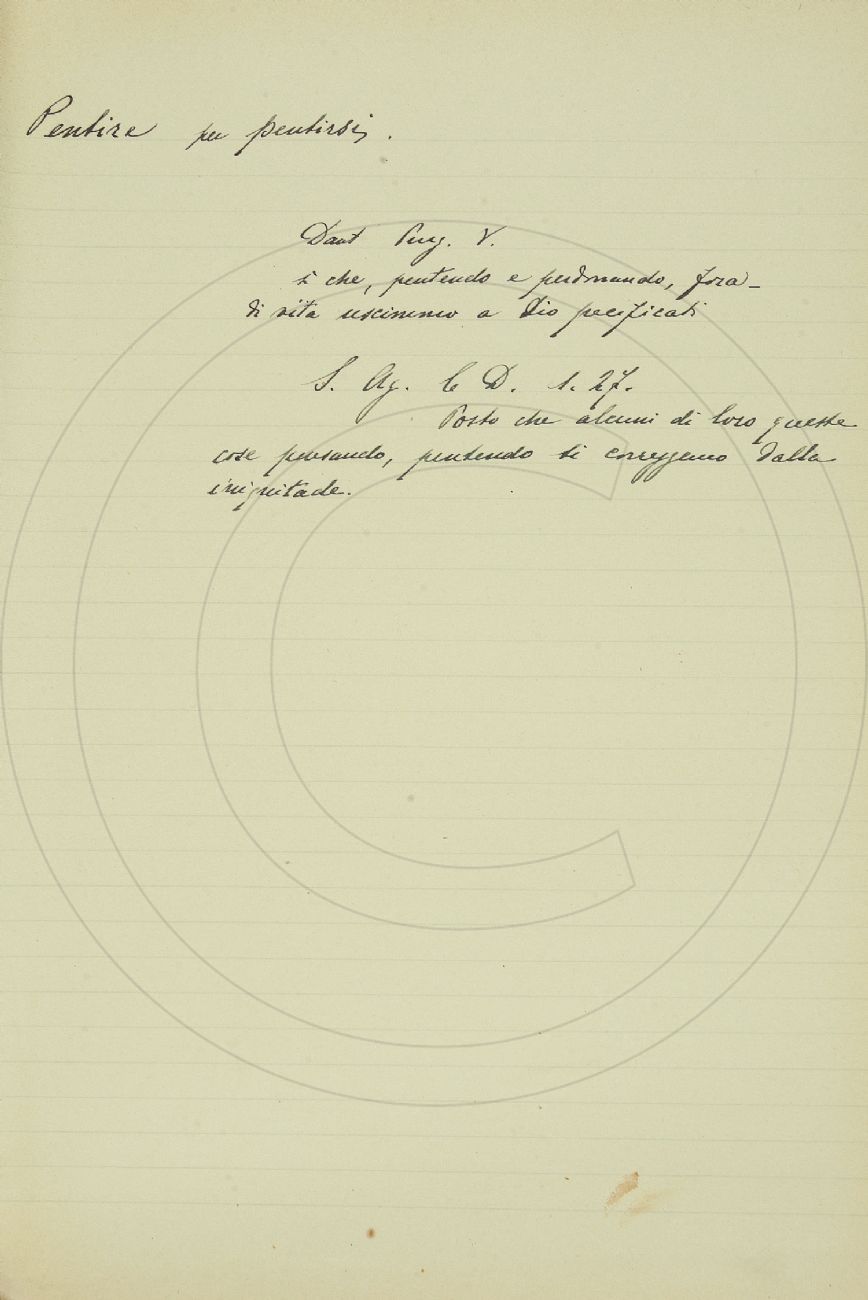 Pentire per pentirsi.
Dant Purg. V.
sì che, pentendo e perdonando, fora-
di vita uscimmo a Dio pacificati
S. Ag. C. D. 1. 27.
Posto che alcuni di loro queste
cose pensando, pentendo si correggano dalla
iniquitade.